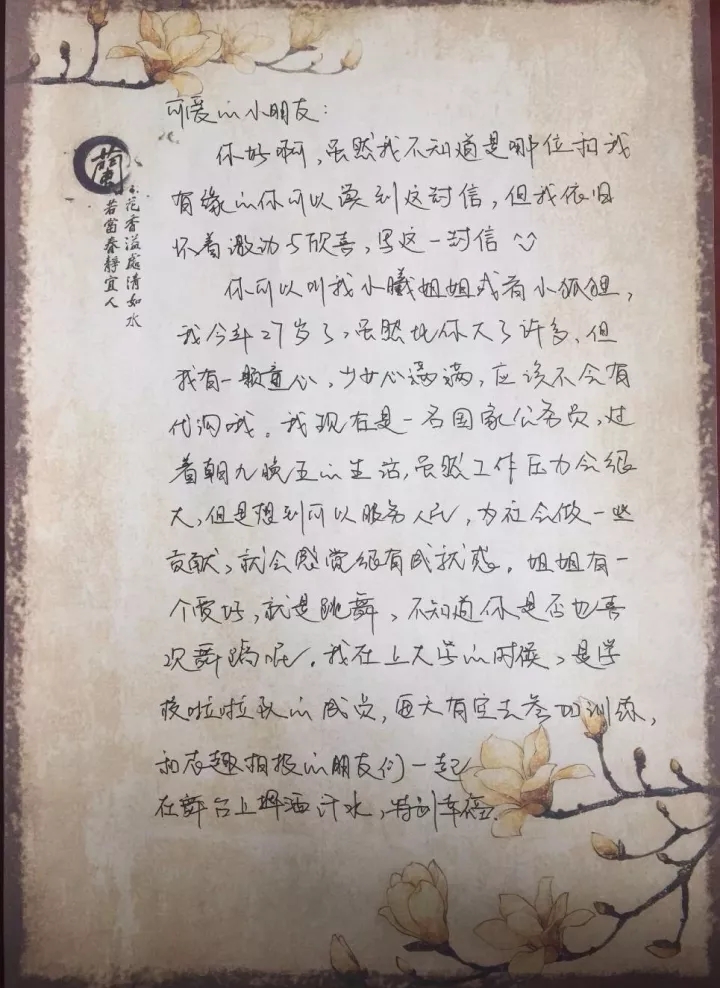 可爱的小朋友：
你好啊，虽然我不知道是哪位和我
有缘的你可以读到这封信，但我依旧
怀着激动与欣喜，写这一封信
你可以叫我小曦姐姐或者小狐狸，
我今年27岁了，虽然比你大了许多，但
我有一颗童心，少女心满满，应该不会有
代沟哦。我现在是一名国家公务员，过
着朝九晚五的生活，虽然工作压力会很
大，但是想到可以服务人民，为社会做一些
贡献，就会感觉很有成就感。姐姐有一
个爱好，就是跳舞，不知道你是否也喜
欢舞蹈呢。我在上大学的时候，是学
校啦啦队的成员，每天有空去参加训练，
和志趣相投的朋友们一起
在舞台上挥洒汗水，特别幸福.
蘭
玉花香溢處清如水
若當春靜宜人